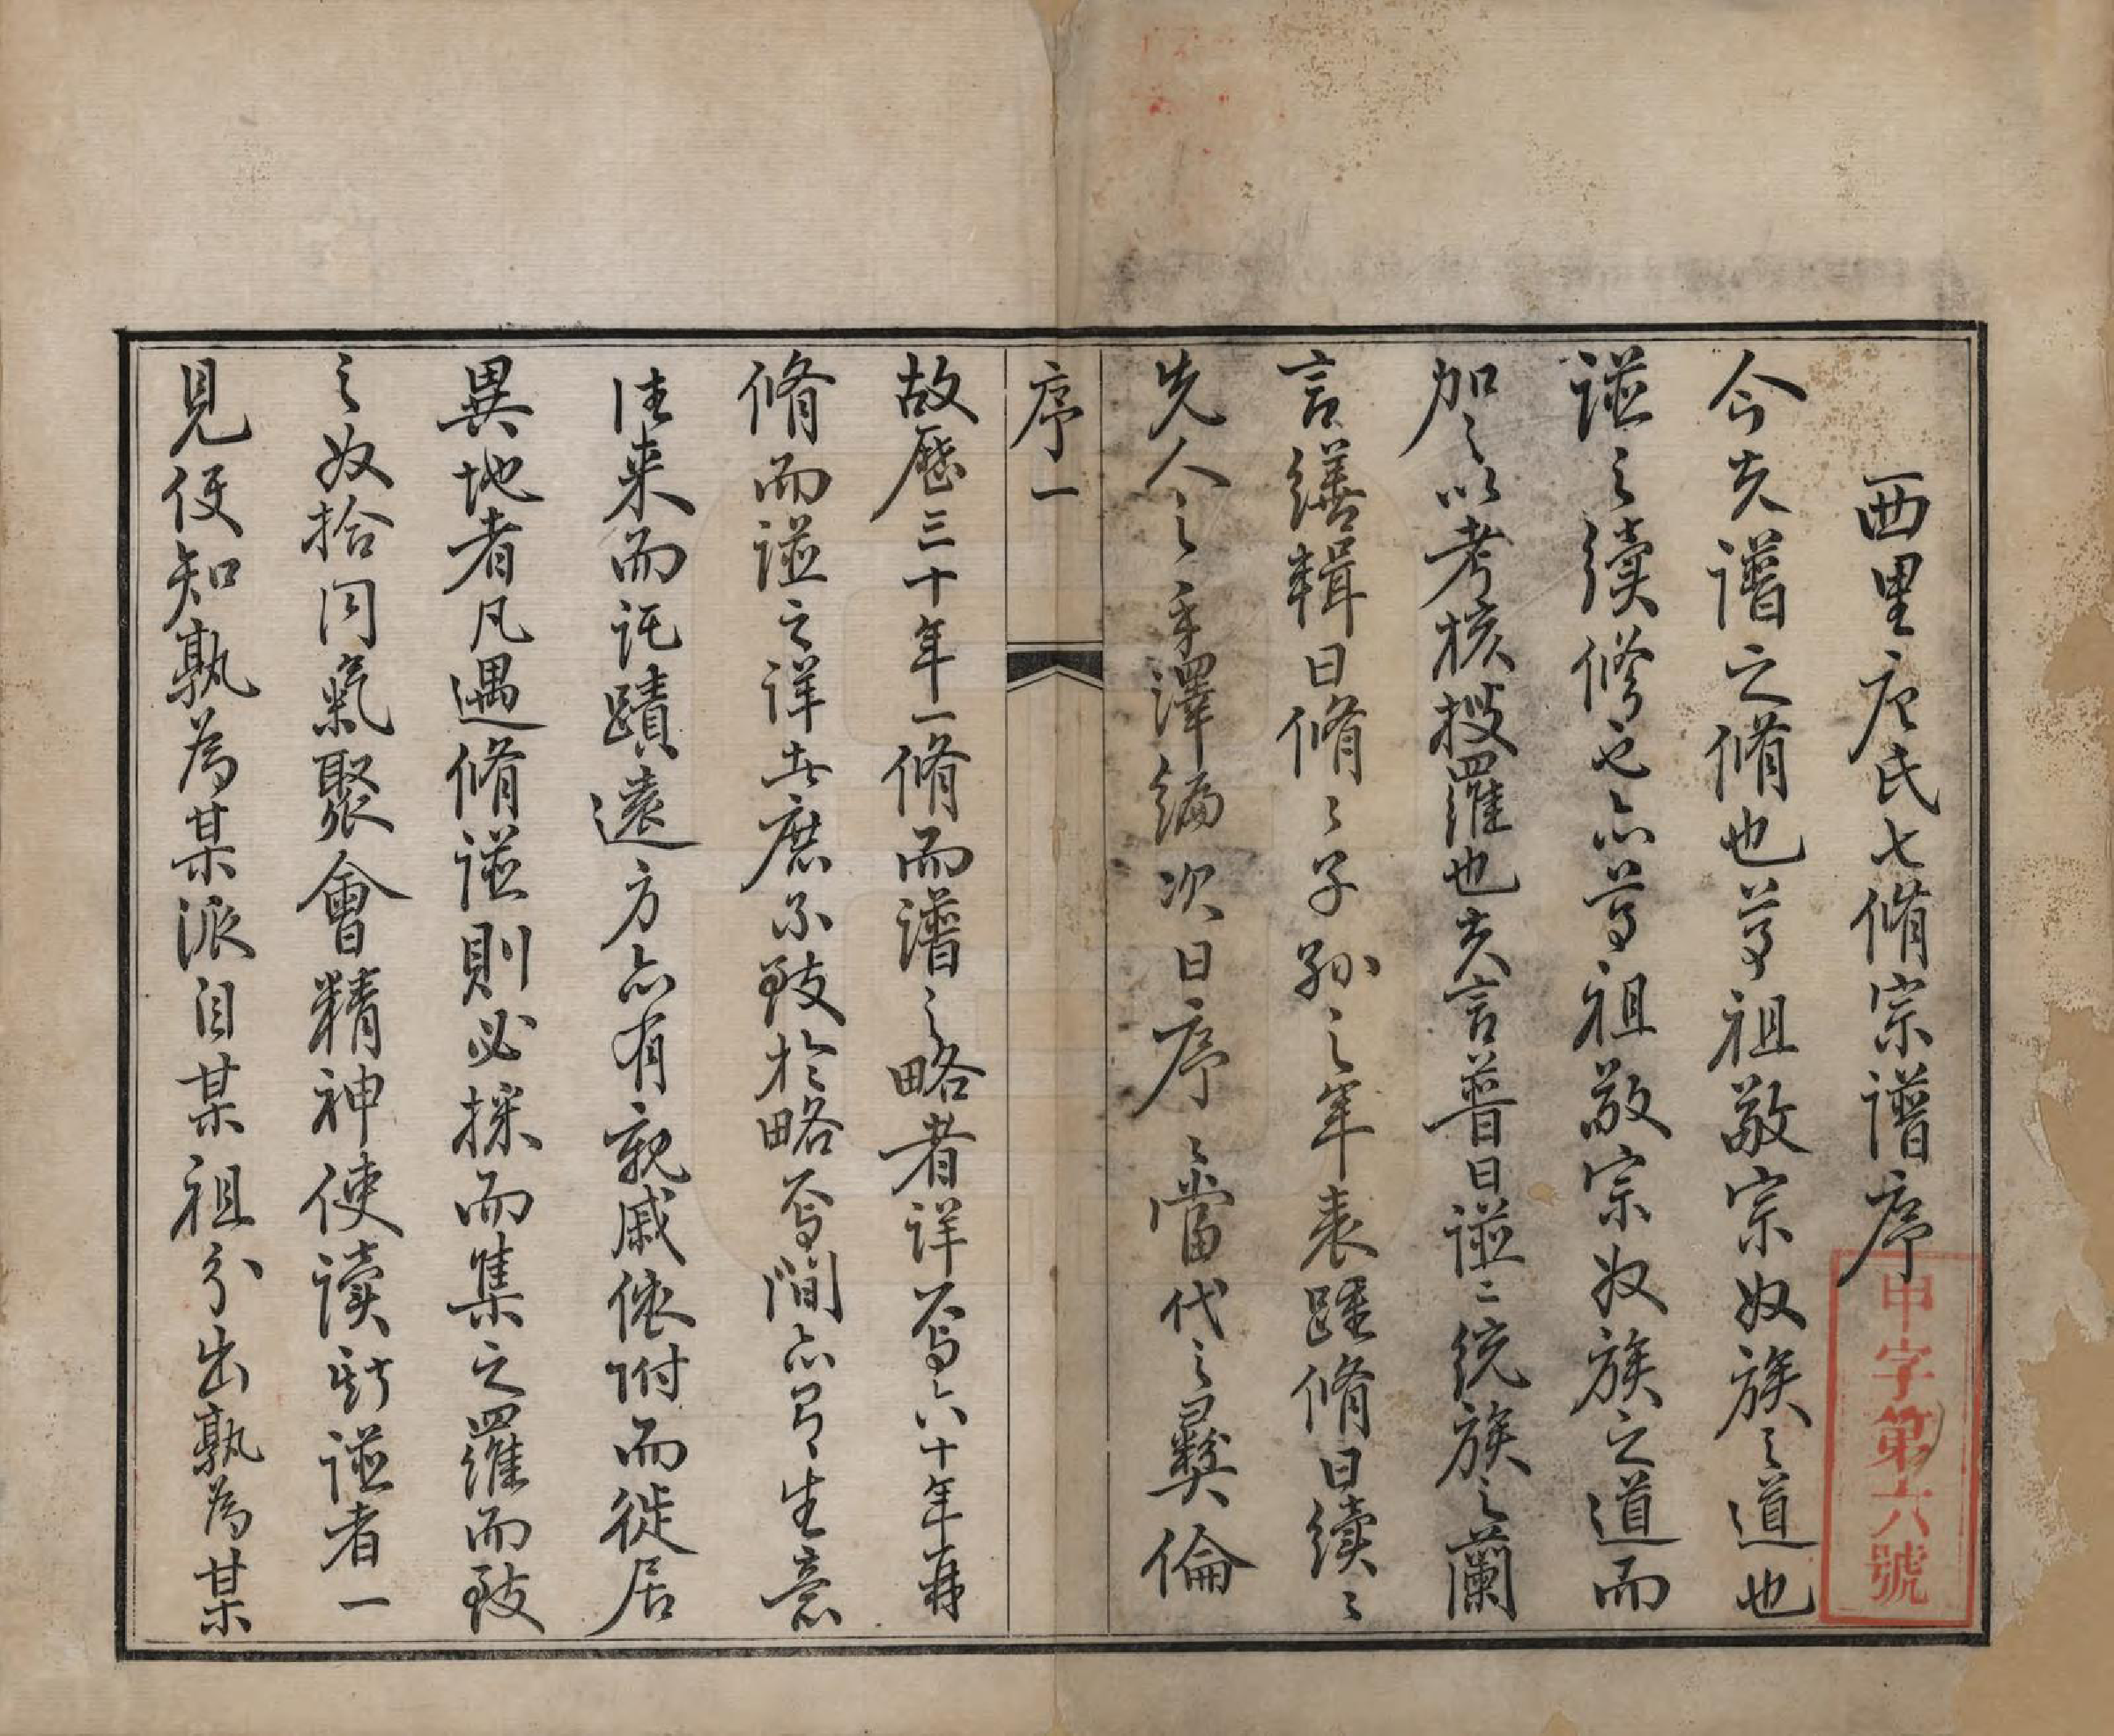 西里唐氏七脩宗譜序
今夫譜之脩也尊祖敬宗収族之道也
諩之續修也亦尊祖敬宗収族之道而
加之以考核搜羅也夫言普曰諩〻統族之蘭
言繕輯曰脩〻子孫之年表踵脩曰續〻
先人之手澤編次曰序〻當代之彝倫
序一
故歷三十年一脩而譜之略者詳焉六十年再
脩而諩之詳者庶不致於略焉間亦有生意
往來而託蹟遠方亦有親戚依附而徙居
異地者凡遇脩諩則必採而集之羅而致
之収拾同氣聚會精神使讀斯諩者一
見便知孰為某派自某祖分出孰為某
申字第六號